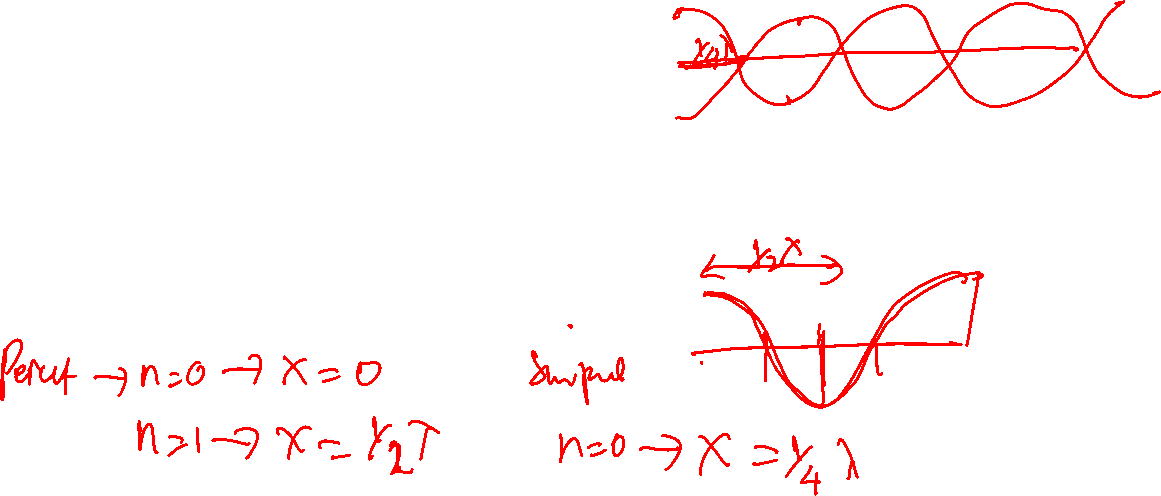 ¼λ
½λ
Perut → n=0 → x = 0
n=1 → x = ½λ
Simpul
n=0 → x = ¼ λ